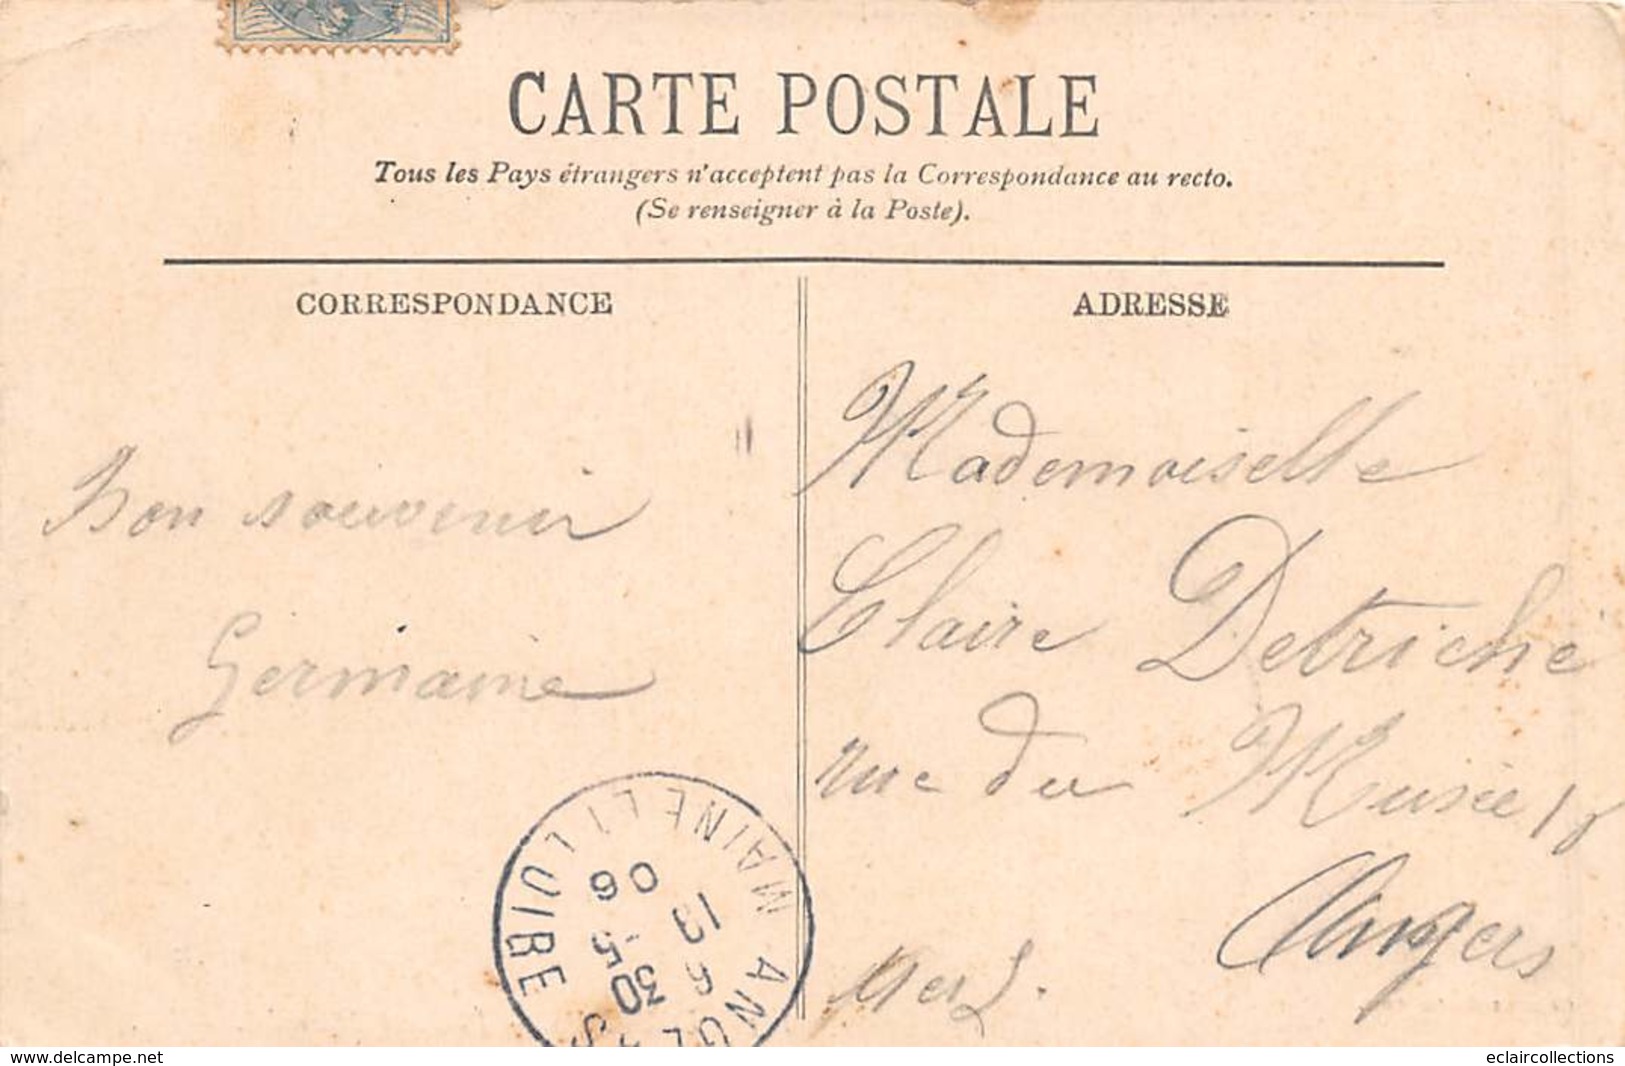 CARTE POSTALE
Tous les Pays étrangers n'acceptent pas la Correspondance au recto.
(Se renseigner à la Poste).
CORRESPONDANCE
ADRESSE
Bon souvenir
Germaine
Mademoiselle
Claire Detriché
rue du Musée
Angers
M et L.
ANGERS
MAINE ET LOIRE
www.delcampe.net
eclaircollections